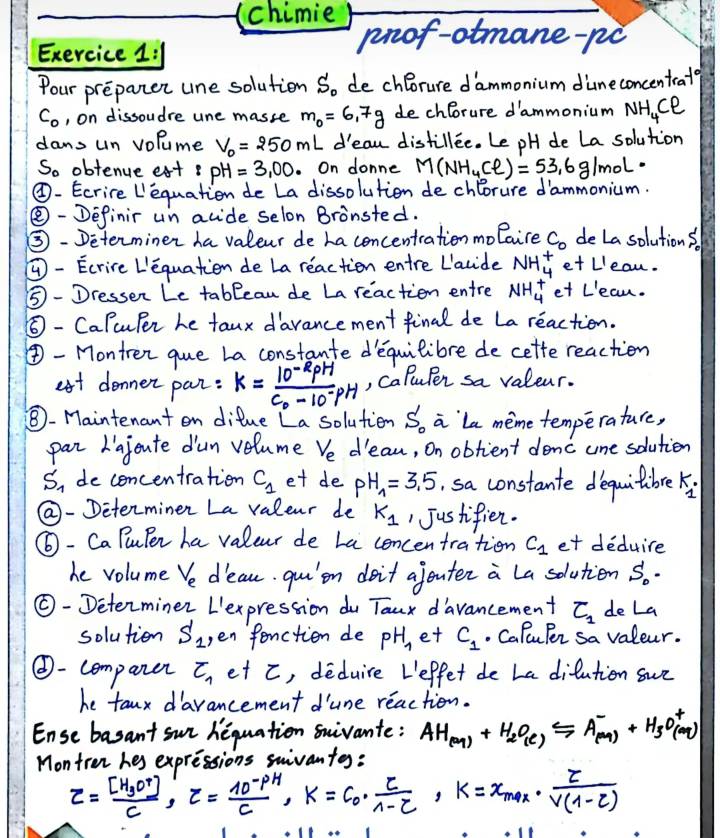 Chimie
prof-otmane-pc
Exercice 1:
Pour préparer une solution S₀ de chlorure d'ammonium d'une concentrat°
C₀, on dissoudre une masse m₀ = 6,7g de chlorure d'ammonium NH₄Cl
dans un volume V₀ = 250 mL d'eau distillée. Le pH de la solution
S₀ obtenue est : pH = 3,00. On donne M(NH₄Cl) = 53,6 g/mol.
① - Ecrire l'équation de la dissolution de chlorure d'ammonium.
② - Définir un acide selon Brönsted.
③ - Déterminer la valeur de la concentration molaire C₀ de la solution S₀
④ - Écrire l'équation de la réaction entre l'acide NH₄⁺ et l'eau.
⑤ - Dresser le tableau de la réaction entre NH₄⁺ et l'eau.
⑥ - Calculer le taux d'avancement final de la réaction.
⑦ - Montrer que la constante d'équilibre de cette reaction
est donner par : K = 10^(-2pH) / (C₀ - 10^(-pH)), calculer sa valeur.
⑧ - Maintenant on dilue la solution S₀ à la même température,
par l'ajoute d'un volume Vₑ d'eau, On obtient donc une solution
S₁ de concentration C₁ et de pH₁ = 3,5, sa constante d'équilibre K₁:
ⓐ - Déterminer la valeur de K₁, Justifier.
ⓑ - Calculer la valeur de la concentration C₁ et déduire
le volume Vₑ d'eau qu'on doit ajouter à la solution S₀.
ⓒ - Déterminer l'expression du Taux d'avancement τ₁ de la
solution S₁, en fonction de pH₁ et C₁. Calculer sa valeur.
ⓓ - Comparer τ₁ et τ, déduire l'effet de la dilution sur
le taux d'avancement d'une réaction.
En se basant sur l'équation suivante : AH(aq) + H₂O(l) ⇌ A⁻(aq) + H₃O⁺(aq)
Montrer les expréssions suivantes :
τ = [H₃O⁺]/C, τ = 10^(-pH)/C, K = C₀ · τ/(1-τ), K = xmax · τ/(V(1-τ))